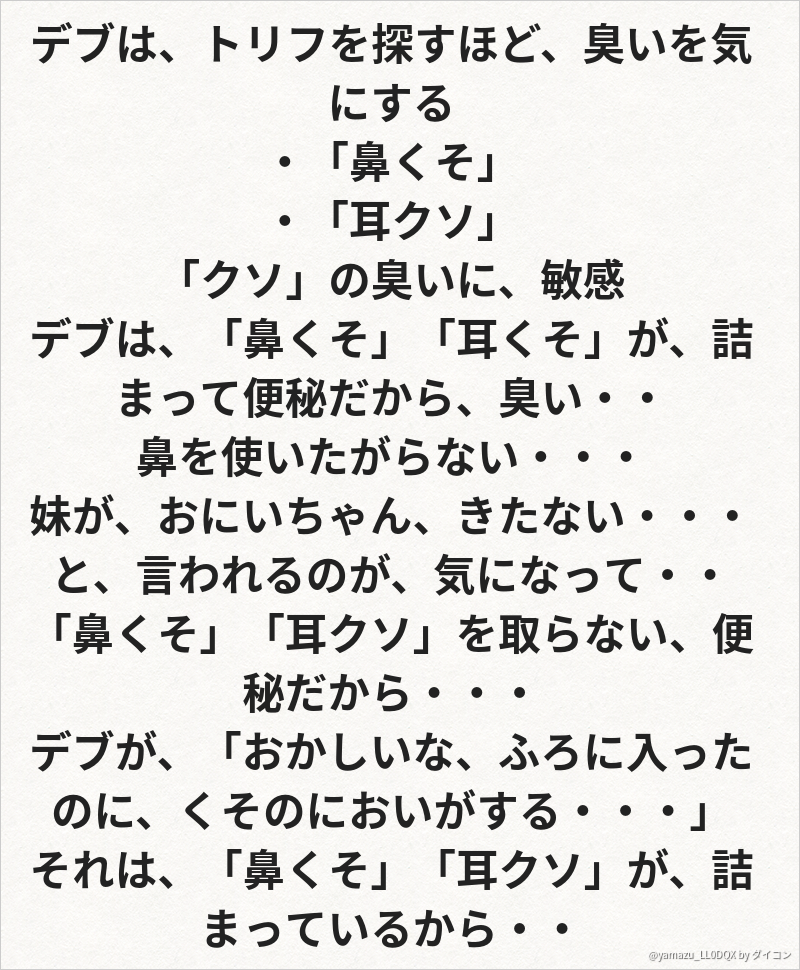 デブは、トリフを探すほど、臭いを気
にする
・「鼻くそ」
・「耳クソ」
「クソ」の臭いに、敏感
デブは、「鼻くそ」「耳くそ」が、詰
まって便秘だから、臭い・・
鼻を使いたがらない・・・
妹が、おにいちゃん、きたない・・・
と、言われるのが、気になって・・
「鼻くそ」「耳クソ」を取らない、便
秘だから・・・
デブが、「おかしいな、ふろに入った
のに、くそのにおいがする・・・」
それは、「鼻くそ」「耳クソ」が、詰
まっているから・・
@yamazu_LL0DQX by ダイコン